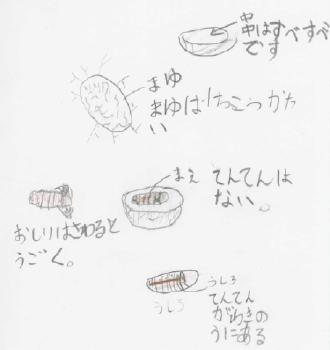 中はすべすべ
です
まゆ
まゆはけっこうかた
い
まえ
てんてんは
ない。
おしりはさわると
うごく。
うしろ
うしろ
てんてん
がわきの
うにある